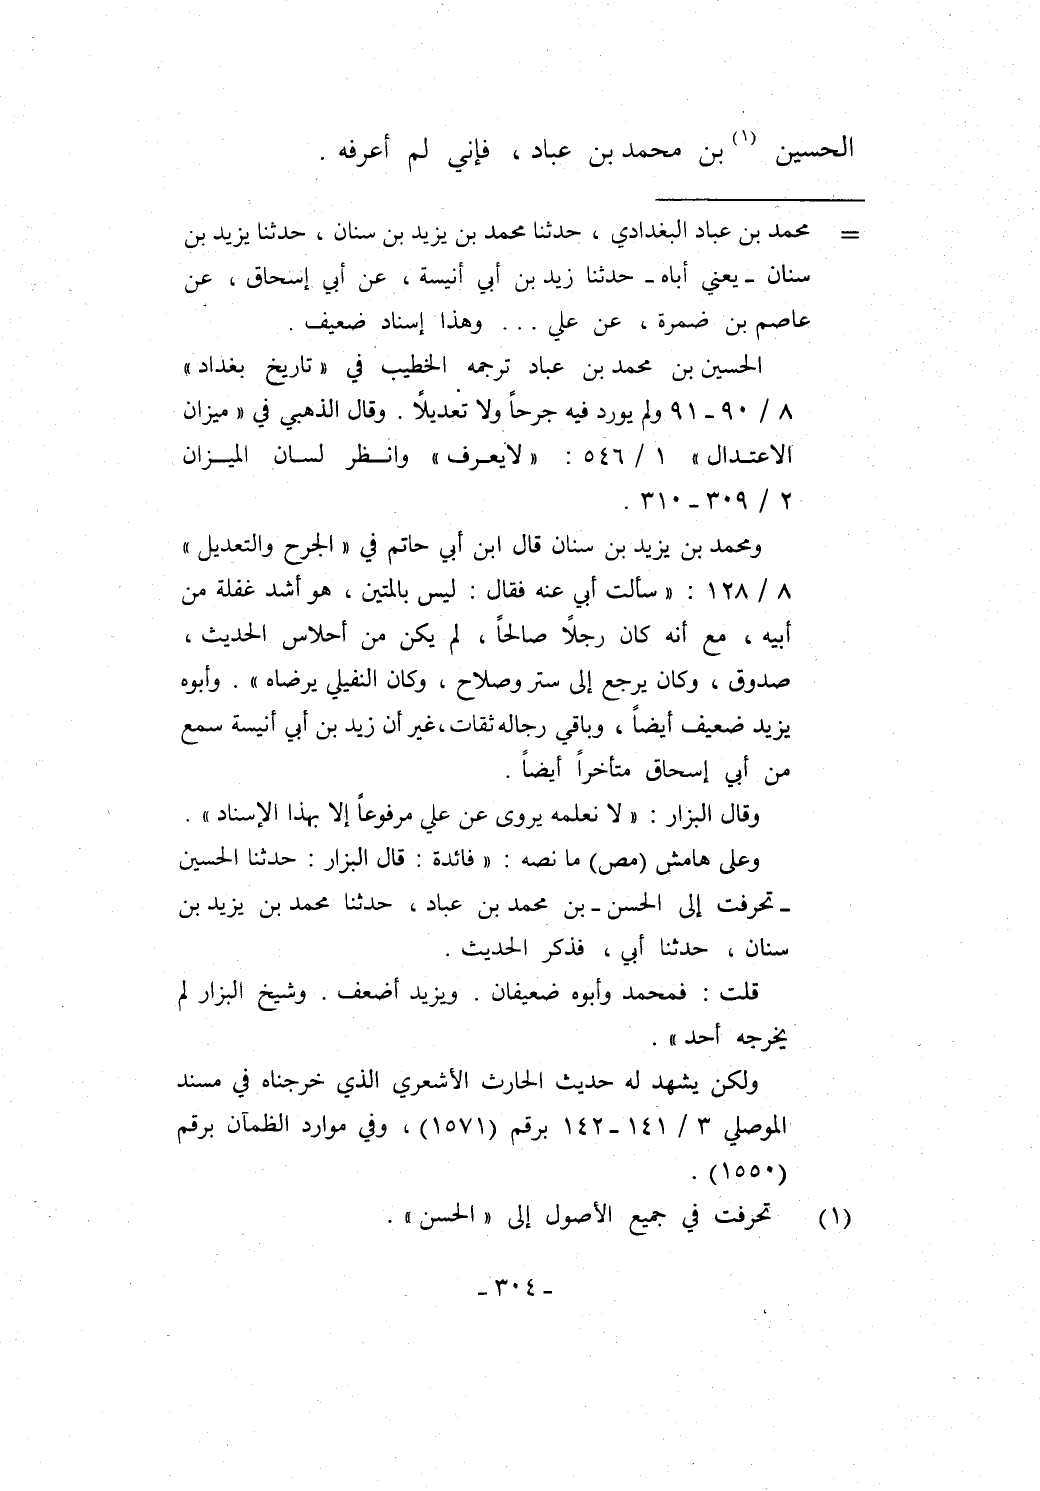 الحسين (١) بن محمد بن عباد ، فإني لم أعرفه .
= محمد بن عباد البغدادي ، حدثنا محمد بن يزيد بن سنان ، حدثنا يزيد بن
سنان ـ يعني أباه ـ حدثنا زيد بن أبي أنيسة ، عن أبي إسحاق ، عن
عاصم بن ضمرة ، عن علي ... وهذا إسناد ضعيف .
الحسين بن محمد بن عباد ترجمه الخطيب في « تاريخ بغداد »
٨ / ٩٠ ـ ٩١ ولم يورد فيه جرحاً ولا تعديلاً . وقال الذهبي في « ميزان
الاعتدال » ١ / ٥٤٦ : « لايعرف » وانظر لسان الميزان
٢ / ٣٠٩ ـ ٣١٠ .
ومحمد بن يزيد بن سنان قال ابن أبي حاتم في « الجرح والتعديل »
٨ / ١٢٨ : « سألت أبي عنه فقال : ليس بالمتين ، هو أشد غفلة من
أبيه ، مع أنه كان رجلاً صالحاً ، لم يكن من أحلاس الحديث ،
صدوق ، وكان يرجع إلى ستر وصلاح ، وكان النفيلي يرضاه » . وأبوه
يزيد ضعيف أيضاً ، وباقي رجاله ثقات ، غير أن زيد بن أبي أنيسة سمع
من أبي إسحاق متأخراً أيضاً .
وقال البزار : « لا نعلمه يروى عن علي مرفوعاً إلا بهذا الإسناد » .
وعلى هامش (مص) ما نصه : « فائدة : قال البزار : حدثنا الحسين
ـ تحرفت إلى الحسن ـ بن محمد بن عباد ، حدثنا محمد بن يزيد بن
سنان ، حدثنا أبي ، فذكر الحديث .
قلت : فمحمد وأبوه ضعيفان . ويزيد أضعف . وشيخ البزار لم
يخرجه أحد » .
ولكن يشهد له حديث الحارث الأشعري الذي خرجناه في مسند
الموصلي ٣ / ١٤١ ـ ١٤٢ برقم (١٥٧١) ، وفي موارد الظمآن برقم
(١٥٥٠) .
(١) تحرفت في جميع الأصول إلى « الحسن » .
ـ ٣٠٤ ـ